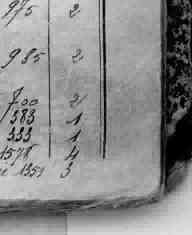 975 2
985 2
700 2
383 1
333 1
1578 4
1351 3